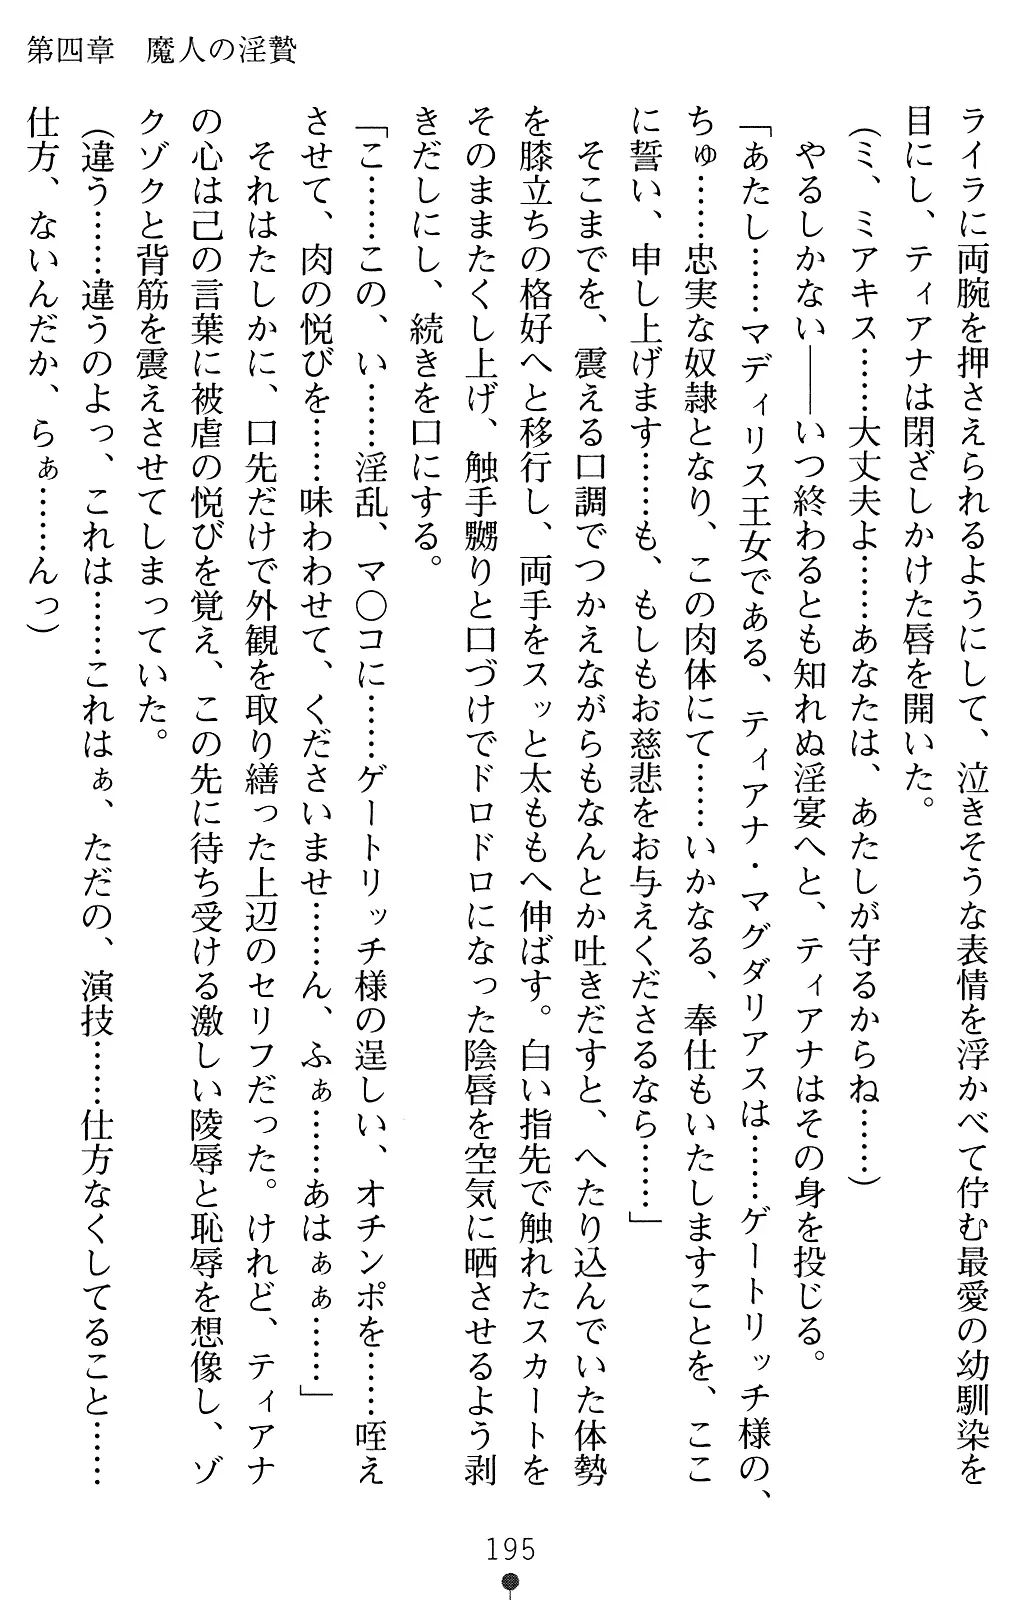 第四章　魔人の淫贄
ライラに両腕を押さえられるようにして、泣きそうな表情を浮かべて佇む最愛の幼馴染を
目にし、ティアナは閉ざしかけた唇を開いた。
（ミ、ミアキス……大丈夫よ……あなたは、あたしが守るからね……）
　やるしかない――いつ終わるとも知れぬ淫宴へと、ティアナはその身を投じる。
「あたし……マディリス王女である、ティアナ・マグダリアスは……ゲートリッチ様の、
ちゅ……忠実な奴隷となり、この肉体にて……いかなる、奉仕もいたしますことを、ここ
に誓い、申し上げます……も、もしもお慈悲をお与えくださるなら……」
　そこまでを、震える口調でつかえながらもなんとか吐きだすと、へたり込んでいた体勢
を膝立ちの格好へと移行し、両手をスッと太ももへ伸ばす。白い指先で触れたスカートを
そのままたくし上げ、触手嬲りと口づけでドロドロになった陰唇を空気に晒させるよう剥
きだしにし、続きを口にする。
「こ……この、い……淫乱、マ〇コに……ゲートリッチ様の逞しい、オチンポを……咥え
させて、肉の悦びを……味わわせて、くださいませ……ん、ふぁ……あはぁぁ……」
　それはたしかに、口先だけで外観を取り繕った上辺のセリフだった。けれど、ティアナ
の心は己の言葉に被虐の悦びを覚え、この先に待ち受ける激しい陵辱と恥辱を想像し、ゾ
クゾクと背筋を震えさせてしまっていた。
（違う……違うのよっ、これは……これはぁ、ただの、演技……仕方なくしてること……
仕方、ないんだか、らぁ……んっ）
195